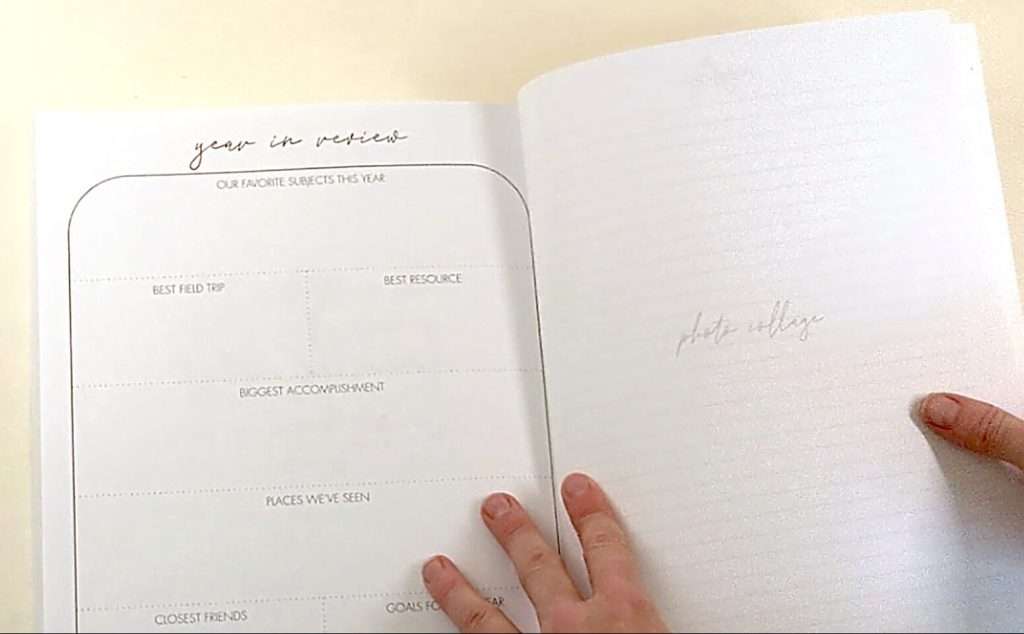 year in review
OUR FAVORITE SUBJECTS THIS YEAR
BEST FIELD TRIP
BEST RESOURCE
BIGGEST ACCOMPLISHMENT
PLACES WE'VE SEEN
CLOSEST FRIENDS
GOALS
photo collage